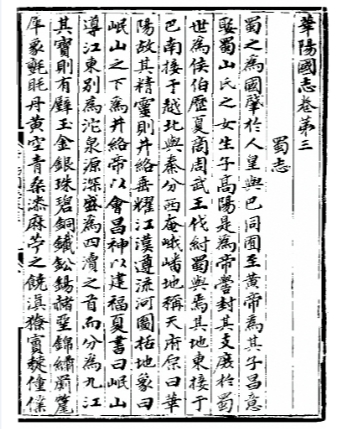 華陽國志卷第三
蜀志
蜀之為國肇於人皇與巴同囿至黃帝為其子昌意
娶蜀山氏之女生子高陽是為帝嚳封其支庶於蜀
世為侯伯歷夏商周武王伐紂蜀與焉其地東接于
巴南接于越北與秦分西奄峨嶓地稱天府原曰華
陽故其精靈則井絡垂耀江漢遵流河圖括地象曰
岷山之下為井絡帝以會昌神以建福夏書曰岷山
導江東別為沱泉源深盛為四瀆之首而分為九江
其寶則有璧玉金銀珠碧銅鐵鉛錫赭堊錦繡罽氂
犀象氈毦丹黃空青桑漆麻苧之饒滇獠賨僰僮僕